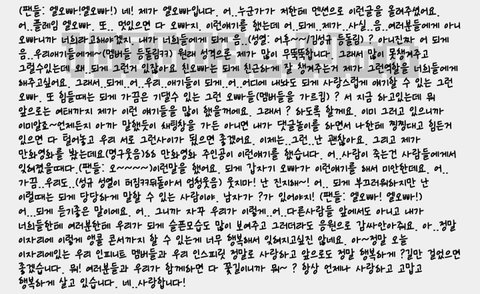 (팬들: 엘오빠!엘오빠!) 네! 제가 엘오빠입니다. 어..누군가가 저한테 멘션으로 이런글을 올려주셨어요.
어..플레임 엘오빠. 또.. 멋있으면 다 오빠지. 이런얘기를 했는데 어..되게..제가..사실..음..여러분들에게 아니
오빠니까 너희라고해야겠네. 내가 너희들에게 되게 음..(성열: 어후~~/김성규 등돌림) ? 아니진짜 어 되게
음..우리애기들에게~(멤버들 등돌림ㅋㅋ) 원래 성격은 되게 제가 많이 무뚝뚝합니다. 그래서 많이 못챙겨주고
그럴수있는데..되게 그런거 있잖아요. 친오빠면 되게 친근하게 잘 챙겨주는거 제가 그런역할을 너희들에게
해주고싶어요. 그래서..되게..어..우리..애기들이 되게..어..어디에 내놔도 되게 사랑스럽게 얘기할 수 있는 그런
오빠. 또 힘들때는 되게 가끔은 기댈수 있는 그런 오빠들(멤버들을 가르킴) ? 서 지금 하고있는데 뭐
앞으로는 여태까지 제가 이런 얘기들을 많이 했을꺼에요. 그래서 ? 하도록 할께요. 이미 그러고 있으니까
이미알죠~언제든지 아까 말했듯이 채팅창을 가든 아니면 내가 댓글놀이를 하면서 나한테 찡찡대고 힘든거
있으면 다 털어놓고 우리 서로 그런사이가 됬으면 좋겠어요. 이제는..그런..난 괜찮아요. 그리고 제가
만화영화를 봤는데요(명구웃음)&& 만화영화 주인공이 이런얘기를 했습니다. 어..사람이 죽는건 사람들에게서
잊혀졌을때다.(팬들: 오~~~~~)이런말을 했어요. 되게 갑자기 오빠가 이런얘기를 해서 미안한데요. 어..
가끔..우리도..(성규 성열이 터짐ㅋㅋ무돌아서 엄청웃음) 웃지마! 난 진지해~! 어.. 되게 부끄러워하지만 난
이럴때는 되게 당당하게 말할 수 있는 사람이야. 남자가 ?가 있어야지! (팬들: 엘오빠! 엘오빠!)
어..되게 듣기좋은 말이에요. 어.. 그니까 자꾸 우리가 이렇게..어..다른사람들 앞에서도 아니고 내가
너희들한테 여러분한테 우리가 되게 슬픈모습도 많이 보여주고 그러더라도 응원으로 감싸안아줘요. 아..정말
이자리에 이렇게 앵콜 콘서까지 할 수 있는게 너무 행복해서 잊혀지고싶진 않네요. 아~정말 오늘
이자리에있는 우리 인피니트 멤버들과 우리 인스피릿 정말로 사랑하고 앞으로도 정말 행복하게 ?길만 걸었으면
좋겠습니다. 뭐! 여러분들과 우리가 함께하면 다 꽃길이니까 뭐~ ? 항상 언제나 사랑하고 고맙고
행복하게 살고 있습니다. 네..사랑합니다!